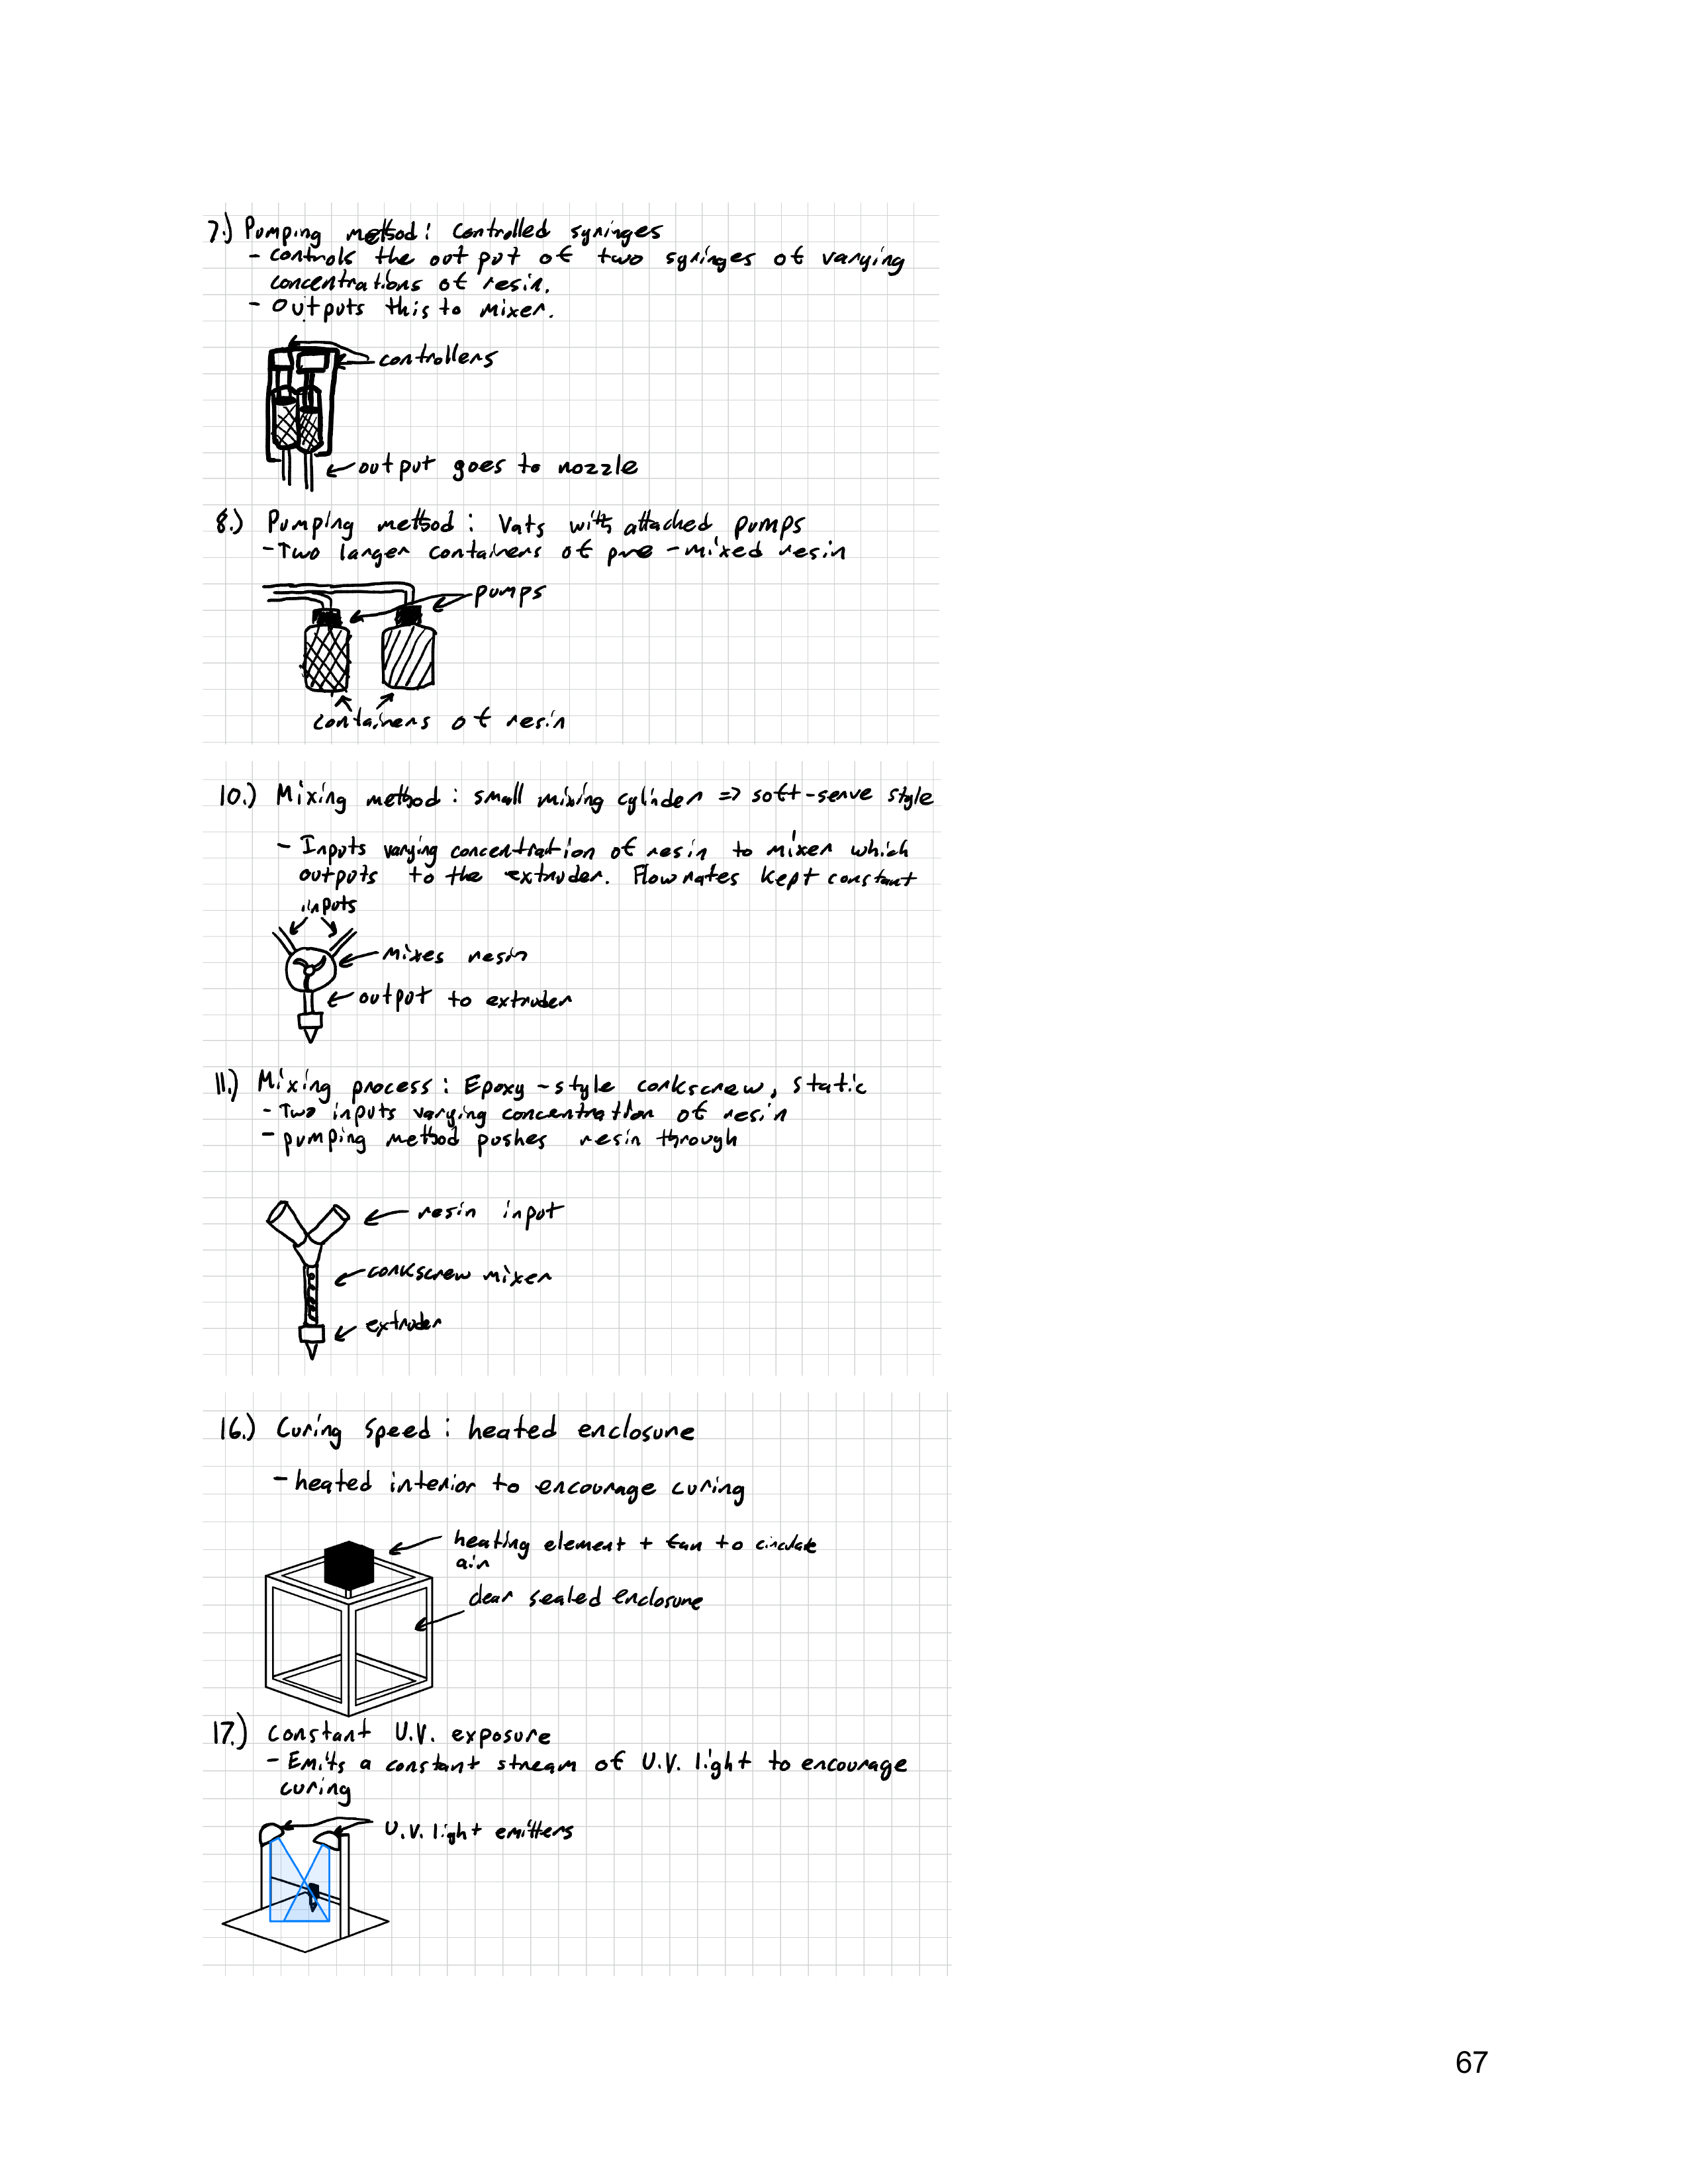 7.) Pumping method: controlled syringes
- controls the output of two syringes of varying
concentrations of resin.
- Outputs this to mixer.
controllers
output goes to nozzle
8.) Pumping method: Vats with attached pumps
- Two larger containers of pre-mixed resin
pumps
containers of resin
10.) Mixing method: small mixing cylinder => soft-serve style
- Inputs varying concentration of resin to mixer which
outputs to the extruder. Flow rates kept constant
inputs
mixes resin
output to extruder
11.) Mixing process: Epoxy-style corkscrew, static
- Two inputs varying concentration of resin
- pumping method pushes resin through
resin input
corkscrew mixer
extruder
16.) Curing speed: heated enclosure
- heated interior to encourage curing
heating element + fan to circulate
air
clear sealed enclosure
17.) Constant U.V. exposure
- Emits a constant stream of U.V. light to encourage
curing
U.V. light emitters
67